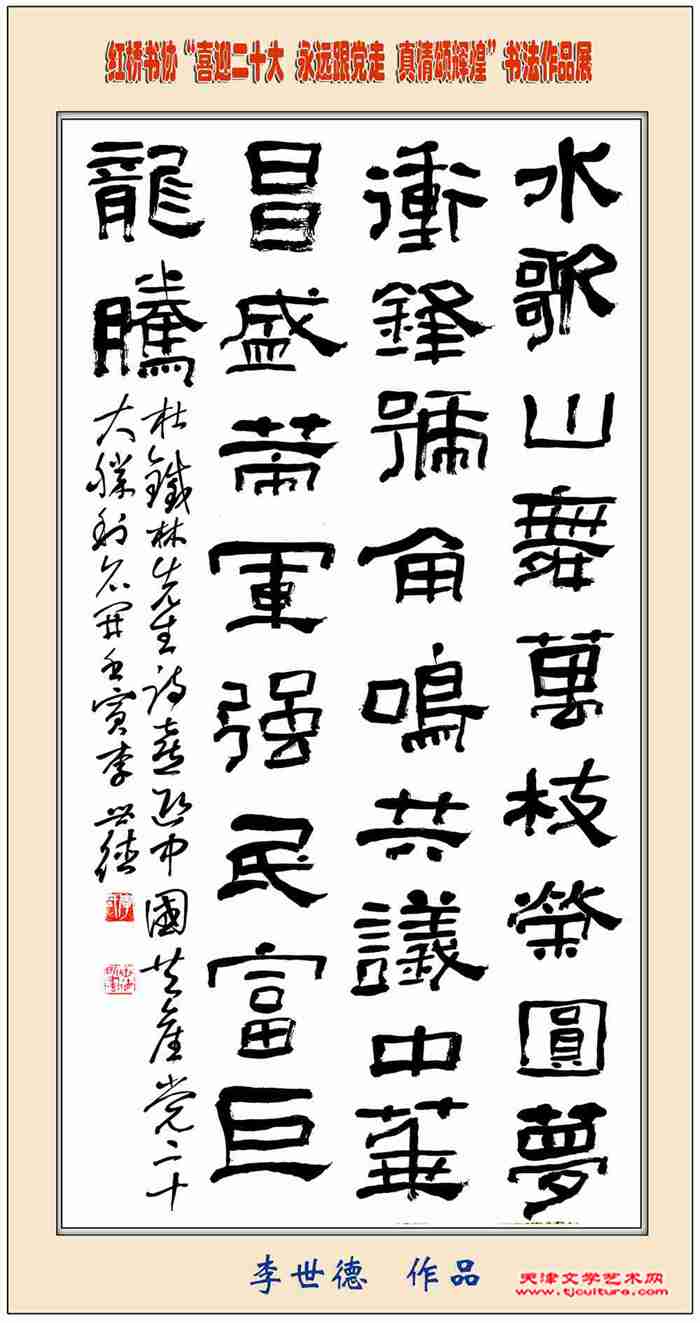 红桥书协“喜迎二十大 永远跟党走 真情颂辉煌”书法作品展
水歌山舞萬枝榮圓夢
衝鋒號角鳴共議中華
昌盛策軍强民富巨
龍騰
杜鐵林先生诗喜迎中國共产党二十
大勝利召開壬寅李世德
李世德 作品
天津文学艺术网
www.tjculture.com